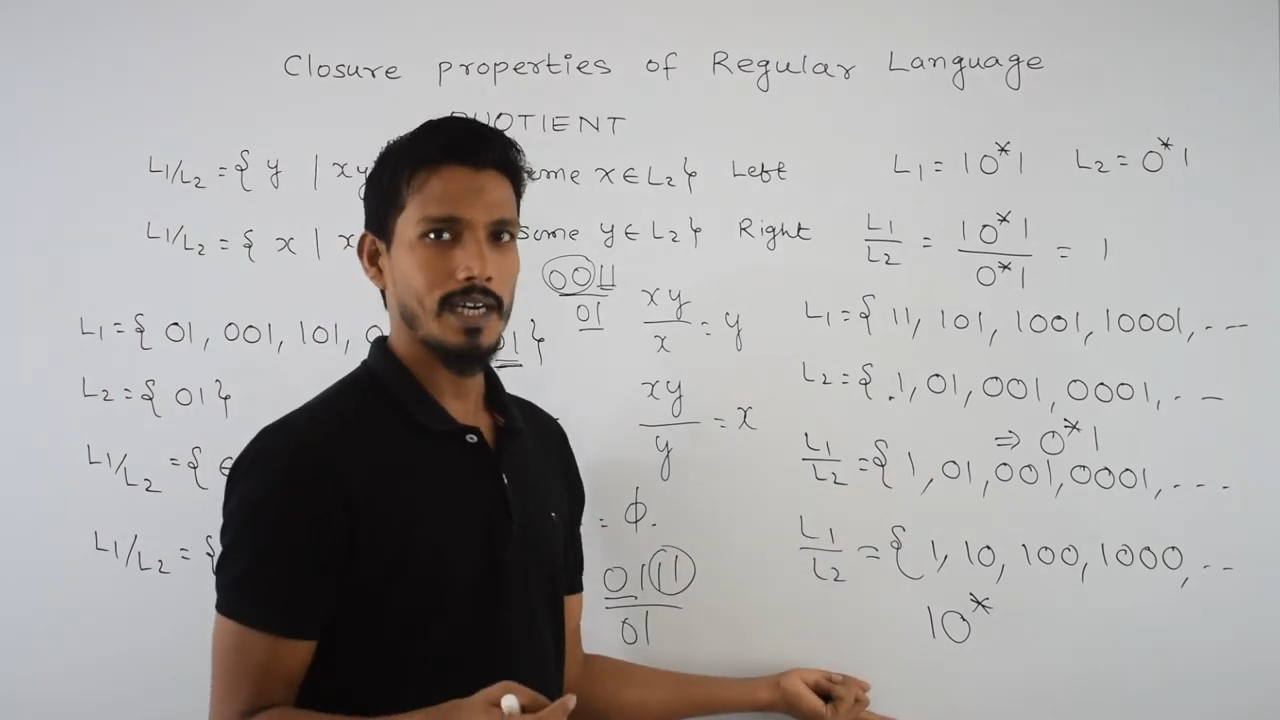 Closure properties of Regular Language
QUOTIENT
L1/L2 = { y | xy some x ∈ L2 } Left
L1/L2 = { x | x some y ∈ L2 } Right
L1 = { 01, 001, 101, 01 }
L2 = { 01 }
L1/L2 = { ∈
L1/L2 = {
0011
01
xy/x = y
xy/y = x
= ϕ.
0111
01
L1 = 10*1 L2 = 0*1
L1/L2 = 10*1/0*1 = 1
L1 = { 11, 101, 1001, 10001, ---
L2 = { 1, 01, 001, 0001, ---
⇒ 0*1
L1/L2 = { 1, 01, 001, 0001, ---
L1/L2 = { 1, 10, 100, 1000, --
10*